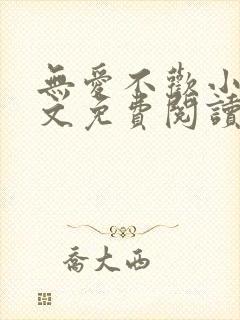 無愛不歡小
文免費閱讀
喬大西